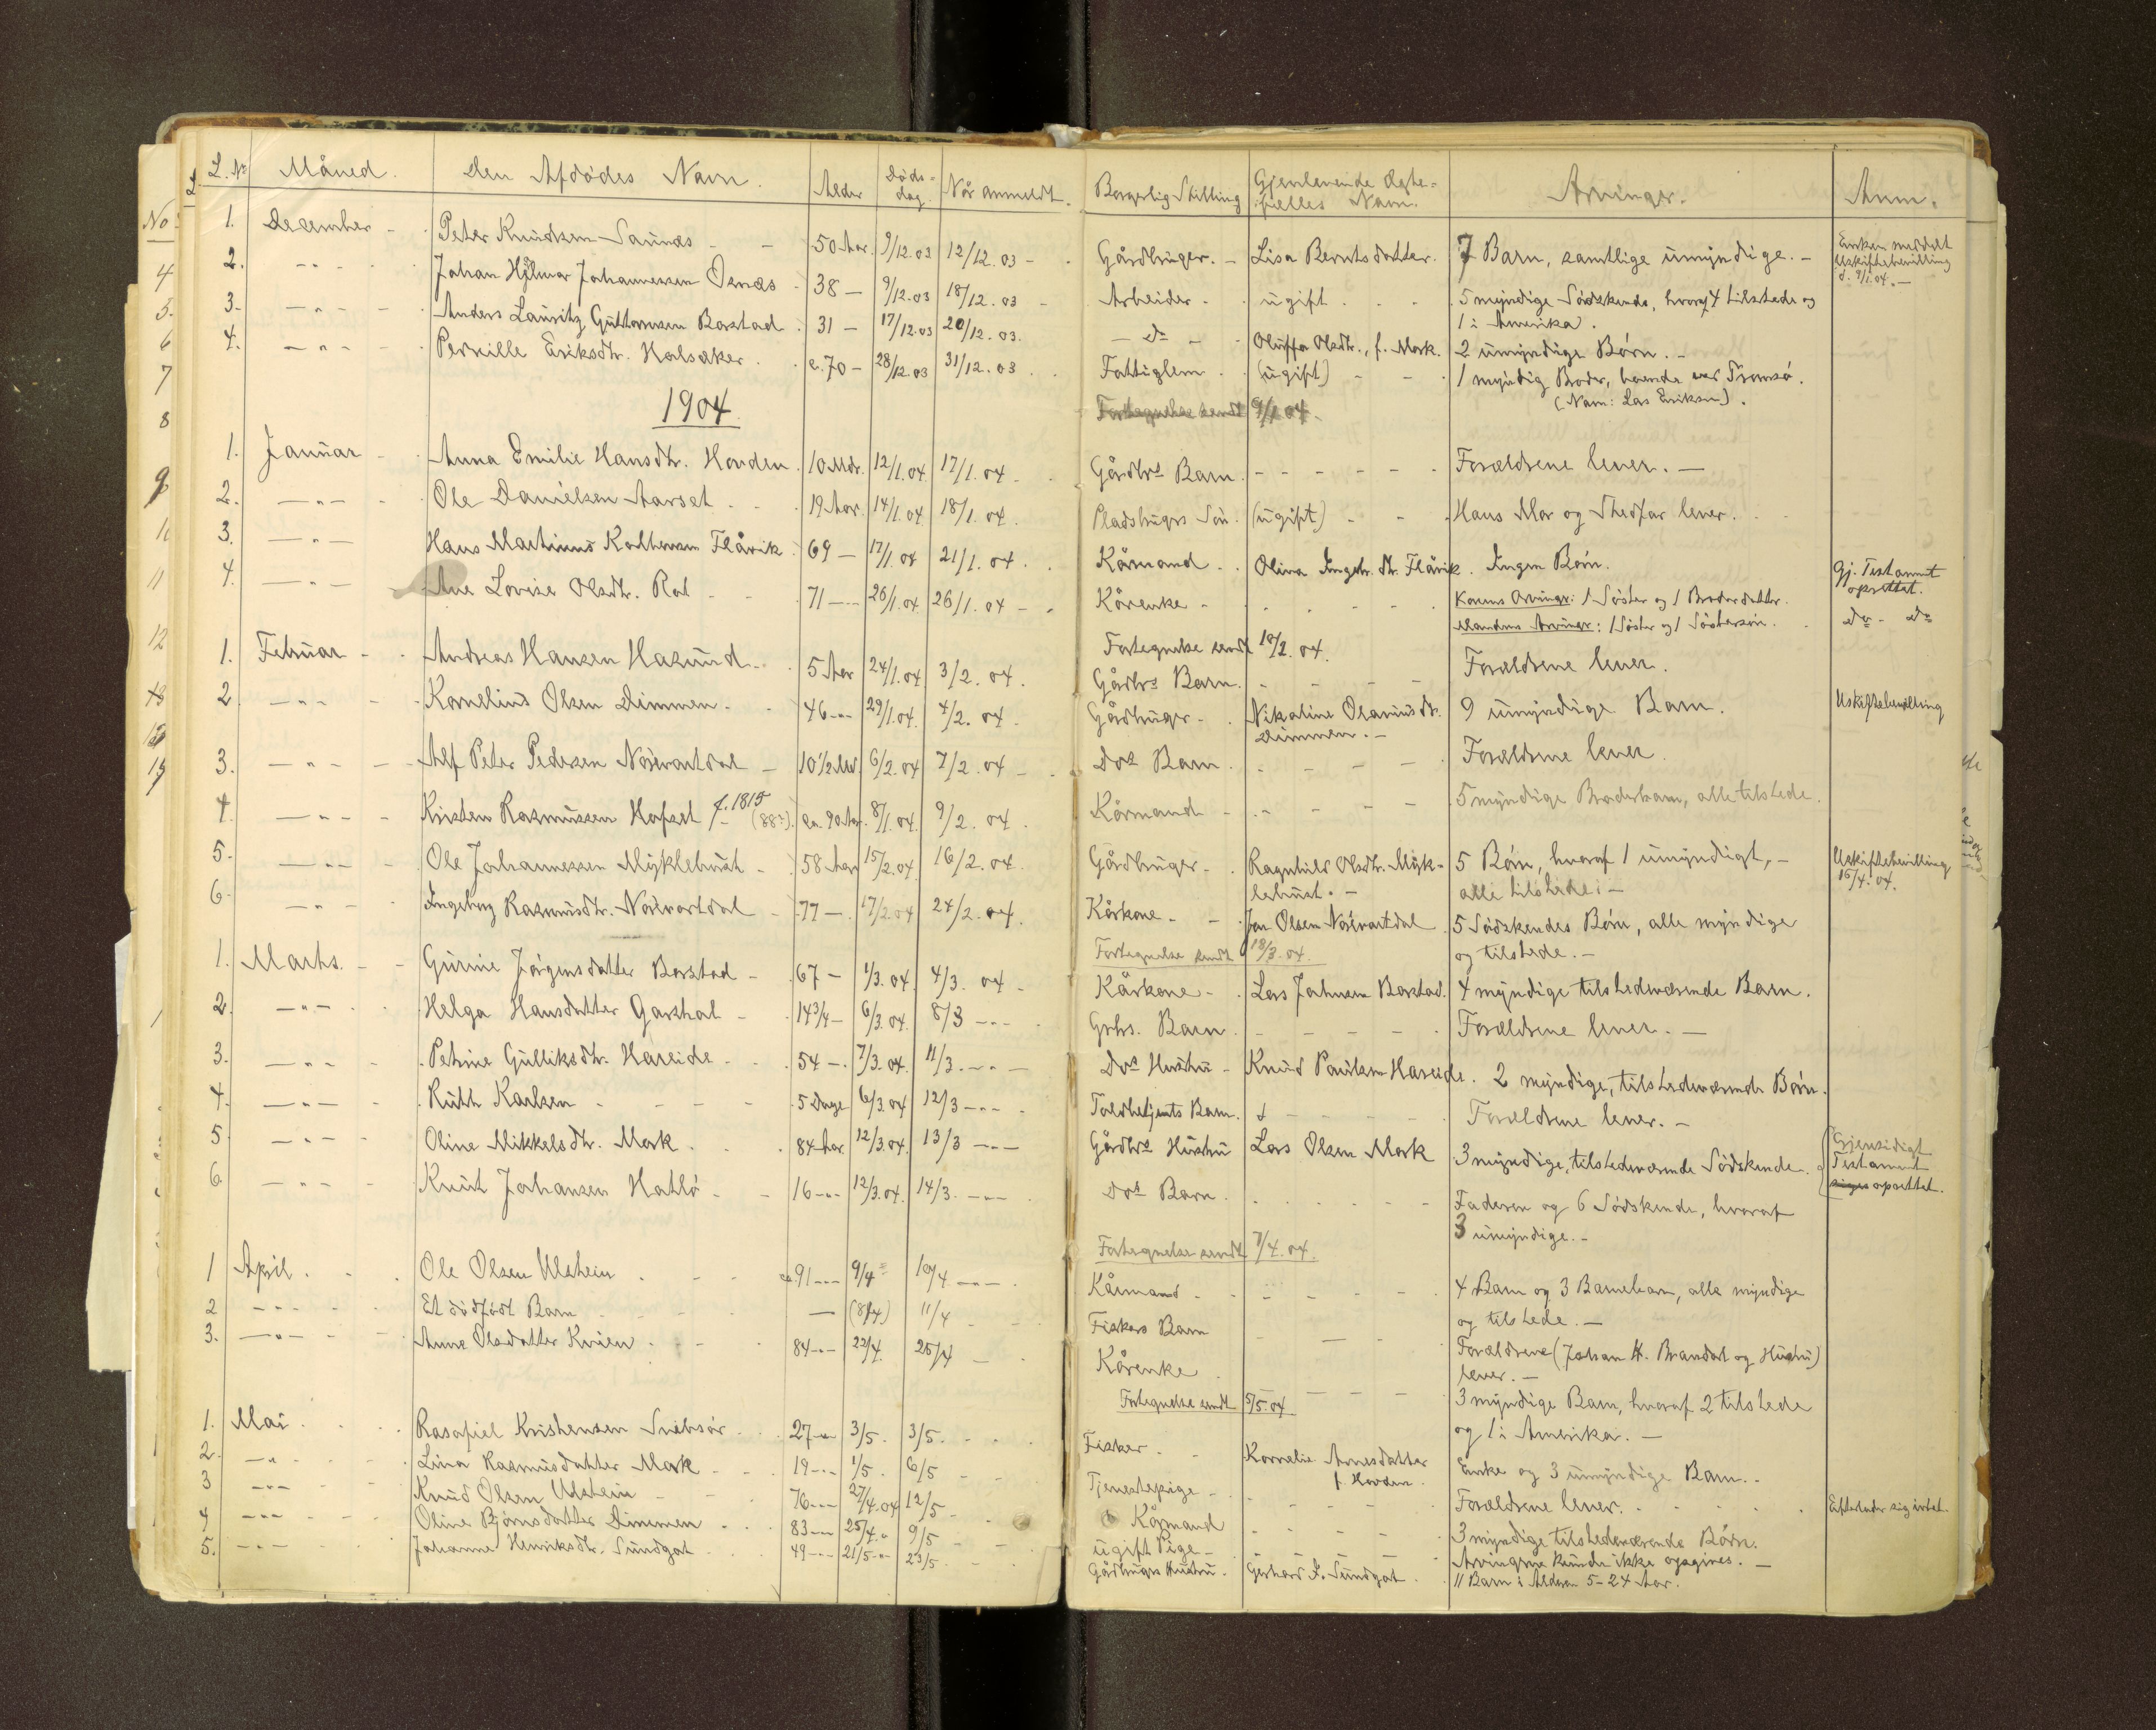 L. Nr Måned. Den Afdødes Navn. Alder Døds- Når anmeldt.
dag.
1. December Peter Knudsen Saunæs 50 Aar. 9/12.03 12/12.03
2. — " — Johan Hjlmar Johannessen Osnæs 38 — 9/12.03 18/12.03
3. — " — Anders Lauritz Guttormsen Borstad 31 — 17/12.03 20/12.03.
4. — " — Pernille Eriksdtr. Holsæker c. 70 — 28/12.03 31/12.03
1904
1. Januar Anna Emilie Hansdtr. Hovden 10 Mdr. 12/1.04. 17/1.04
2. — " — Ole Danielsen Aarset 19 Aar. 14/1.04 18/1.04.
3. — " — Hans Martinus Flåvik 69 — 17/1.04 21/1.04.
4. — " — Ane Lovise Olsdtr. 71 — 26/1.04. 26/1.04
1. Februar Andreas Hansen Hasund 5 Aar 24/1.04. 3/2.04.
2 — " — Kornelius Olsen Dimmen. 46 — 29/1.04. 4/2.04
3. — " — Alf Peter Pedersen Nörvartdal 10 1/2 Md. 6/2.04 7/2.04
4. — " — Kristen Rasmussen Hofset f. 1815 (88?). ca. 90 Aar. 8/1.04. 9/2.04
5. — " — Ole Johannessen Myklebust 58 Aar 15/2.04. 16/2.04.
6. — " — Ingeborg Rasmusdtr. Nörvartdal 77 — 17/2.04 24/2.04.
1. Marts. Gurine Jörgensdatter Borstad 67 — 1/3.04. 4/3.04
2. — " — Helga Hansdatter Garshol 14 3/4 — 6/3.04. 8/3 — " —
3. — " — Petrine Gulliksdtr. Hareide 54 — 7/3.04. 11/3. — " —
4. — " — Ruth Karlsen 5 Dage 6/3.04 12/3 — " —
5. — " — Oline Mikkelsdtr. Mork 84 Aar. 12/3.04. 13/3 — " —
6 — " — Knut Johansen Hatlö 16 — " — 12/3.04. 14/3. — " —
1 April. Ole Olsen Ulstein ca 91 — " — 9/4 10/4 — " —
2 — " — Et dödfödt Barn — (8/4) 11/4
3. — " — Anne Olsdatter Kvien 84 — " — 22/4. 25/4
1. Mai Rasafiel Kristensen Snebsör 27 — " — 3/5. 3/5.
2. — " — Lina Rasmusdatter Mork 19 — " — 1/5. 6/5
3 — " — Knud Olsen Ulstein 76 — " — 27/4.04 12/5
4 — " — Oline Björnsdatter Dimmen 83 — " — 25/4. " 9/5
5. — " — Johanne Henriksdtr. Sundgot 49 — " — 21/5 — " — 23/5
Borgerlig Stilling Gjenlevende Ægte- Arvinger. Anm.
fælles Navn.
Gårdbruger. Lisa Berntsdatter. 7 Barn, samtlige umyndige. — Enken meddelt
Uskiftebevilling
d. 9/1.04. —
Arbeider ugift 5 myndige Södskende, hvoraf 4 tilstede og
1 i Amerika.
— do — Oluffa Olsdtr., f. Mork. 2 umyndige Börn. —
Fattiglem (ugift) 1 myndig Broder, boende ved Tromsö.
(Navn: Lars Eriksen).
Fortegnelse sendt 9/1 04.
Gårdbrs Barn Forældrene lever. —
Pladsbrugers Sön. (ugift) Hans Mor og Stedfar lever.
Kårmand Olina Ingebr. dtr. Flåvik. Ingen Börn. Gj. Testament
oprettet.
Kårenke Konens Arvinger: 1 Söster og 1 Broderdatter.
Mandens Arvinger: 1 Söster og 1 Söstersön. do — do
Fortegnelse sendt 10/2.04.
Gårdbrs Barn. Forældrene lever.
Gårdbruger Nikoline Olaniusdtr. 9 umyndige Barn. Uskiftebevilling
Dimmen. —
Dos Barn Forældrene lever.
Kårmand 5 myndige Broderbarn, alle tilstede.
Gårdbruger Ragnhild Olsdtr. Myk- 5 Börn, hvoraf 1 umyndigt, — Uskiftebevilling
lebust. — alle tilstede: — 16/4.04.
Kårkone Jon Olsen Nörvartdal 5 Södskendes Börn, alle myndige
og tilstede. —
Fortegnelse sendt 18/3.04.
Kårkone Lars Johnsen Borstad. 4 myndige tilstedeværende Barn.
Grbs. Barn Forældrene lever. —
Dos Hustru Knud Paulsen Hareide. 2 myndige, tilstedeværende Börn.
Toldbetjents Barn. Forældrene lever. —
Gårdbrs Hustru Lars Olsen Mork 3 myndige, tilstedeværende Södskende Gjensidigt
Testament
oprettet.
Dos Barn Faderen og 6 Södskende, hvoraf
3 umyndige. —
Fortegnelse sendt 7/4.04.
Kårmand 4 Barn og 3 Barnebarn, alle myndige
og tilstede. —
Fiskers Barn Forældrene (Johan H. Brandal og Hustru)
lever. —
Kårenke 3 myndige Barn, hvoraf 2 tilstede
og 1 i Amerika. —
Fortegnelse sendt 5/5.04
Fisker Kornelie Arnesdatter Enke og 3 umyndige Barn.
f. Hovden.
Tjenestepige Forældrene lever. Efterlader sig intet.
Kårmand 3 myndige tilstedeværende Börn.
ugift Pige Arvingerne kunde ikke opgives. —
Gårdbrugers Hustru. Gerhard J. Sundgot 11 Barn i Alderen 5-24 Aar.
No
4
5.
6
7
8
9
10
11
12
13